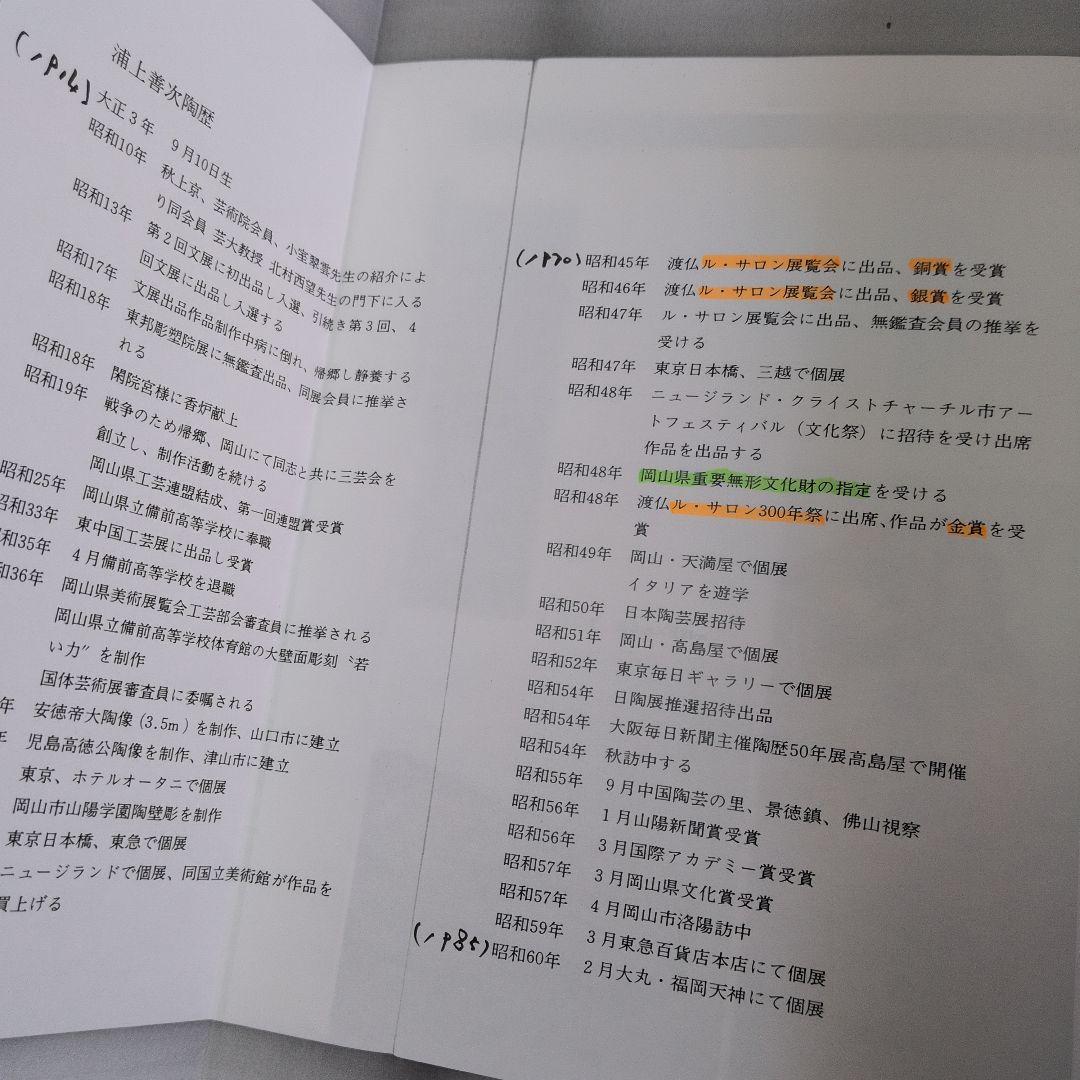 浦上善次陶歴
(1914) 大正3年 9月10日生
昭和10年 秋上京、芸術院会員、小室翠雲先生の紹介によ
り同会員 芸大教授 北村西望先生の門下に入る
昭和13年 第2回文展に初出品し入選、引続き第3回、4
回文展に出品し入選する
昭和17年 文展出品作品制作中病に倒れ、帰郷し静養する
昭和18年 東邦彫塑院展に無鑑査出品、同展会員に推挙さ
れる
昭和18年 閑院宮様に香炉献上
昭和19年 戦争のため帰郷、岡山にて同志と共に三芸会を
創立し、制作活動を続ける
岡山県工芸連盟結成、第一回連盟賞受賞
昭和25年 岡山県立備前高等学校に奉職
昭和33年 東中国工芸展に出品し受賞
和35年 4月備前高等学校を退職
和36年 岡山県美術展覧会工芸部会審査員に推挙される
岡山県立備前高等学校体育館の大壁面彫刻〝若
い力〟を制作
国体芸術展審査員に委嘱される
年 安徳帝大陶像(3.5m)を制作、山口市に建立
年 児島高徳公陶像を制作、津山市に建立
東京、ホテルオータニで個展
岡山市山陽学園陶壁彫を制作
東京日本橋、東急で個展
ニュージランドで個展、同国立美術館が作品を
買上げる
(1970) 昭和45年 渡仏ル・サロン展覧会に出品、銅賞を受賞
昭和46年 渡仏ル・サロン展覧会に出品、銀賞を受賞
昭和47年 ル・サロン展覧会に出品、無鑑査会員の推挙を
受ける
昭和47年 東京日本橋、三越で個展
昭和48年 ニュージランド・クライストチャーチル市アー
トフェスティバル（文化祭）に招待を受け出席
作品を出品する
昭和48年 岡山県重要無形文化財の指定を受ける
昭和48年 渡仏ル・サロン300年祭に出席、作品が金賞を受
賞
昭和49年 岡山・天満屋で個展
イタリアを遊学
昭和50年 日本陶芸展招待
昭和51年 岡山・高島屋で個展
昭和52年 東京毎日ギャラリーで個展
昭和54年 日陶展推選招待出品
昭和54年 大阪毎日新聞主催陶歴50年展高島屋で開催
昭和54年 秋訪中する
昭和55年 9月中国陶芸の里、景徳鎮、佛山視察
昭和56年 1月山陽新聞賞受賞
昭和56年 3月国際アカデミー賞受賞
昭和57年 3月岡山県文化賞受賞
昭和57年 4月岡山市洛陽訪中
昭和59年 3月東急百貨店本店にて個展
(1985) 昭和60年 2月大丸・福岡天神にて個展